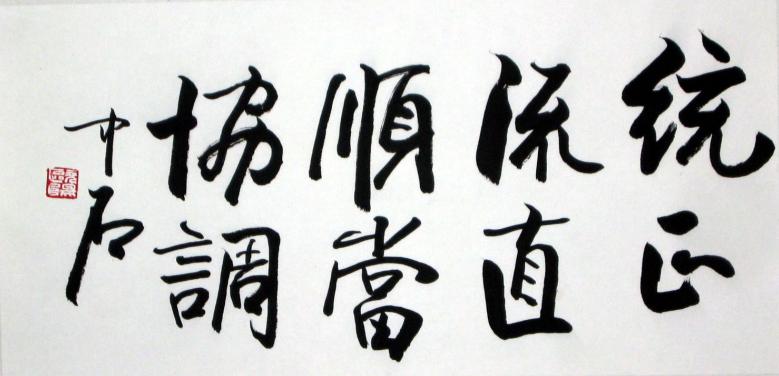 统正
流直
順當
協調
中石